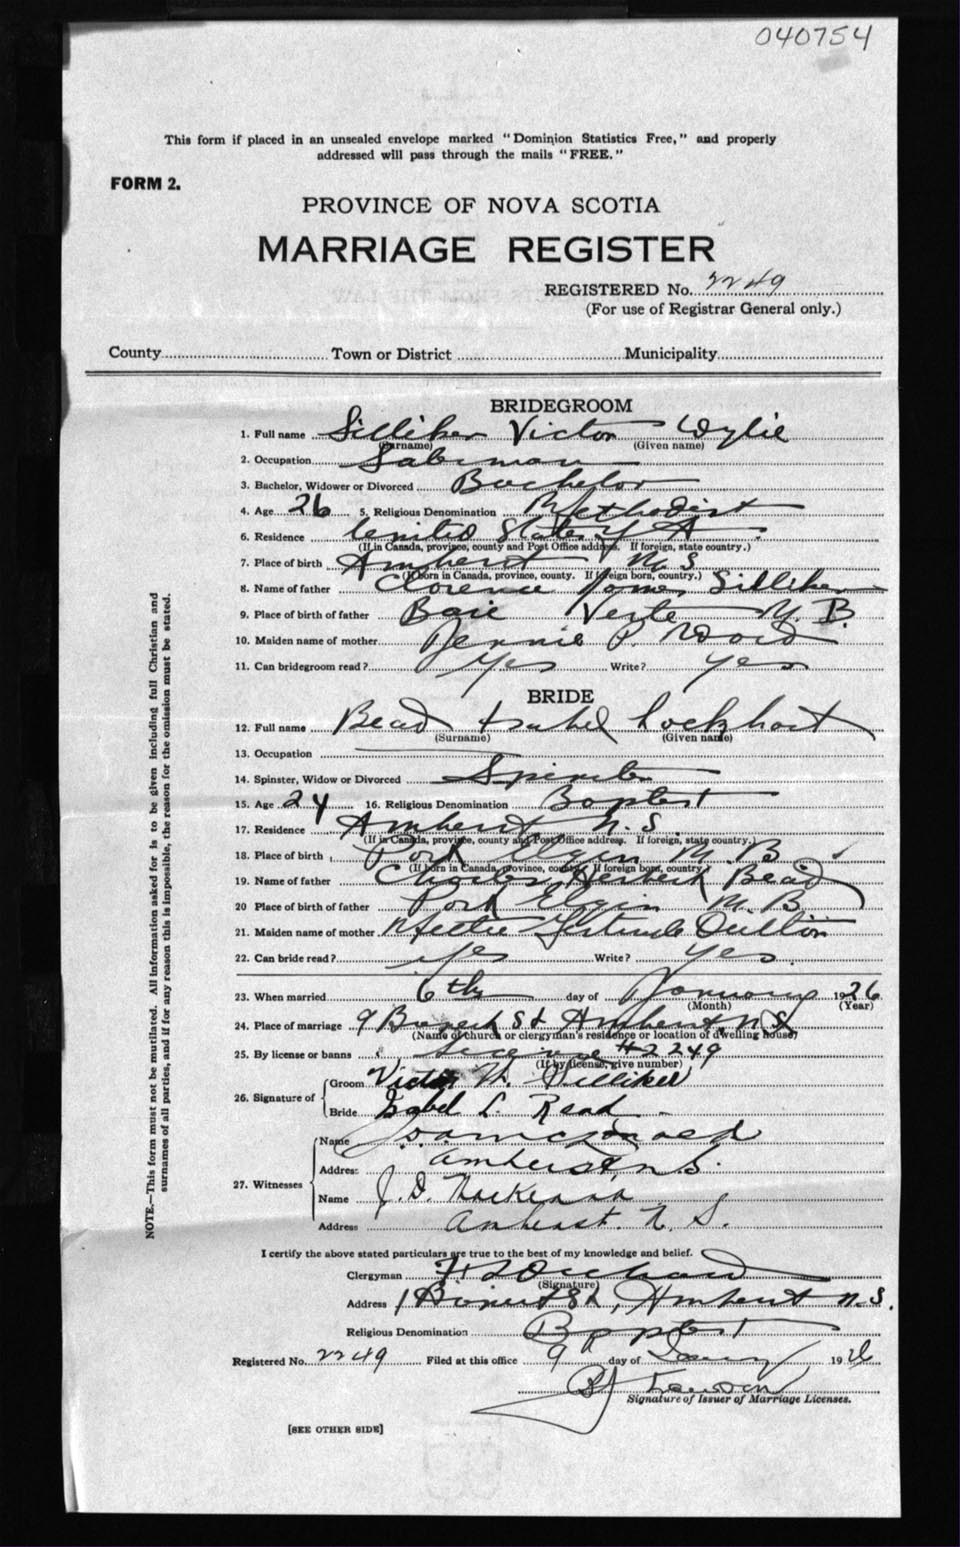 040754
This form if placed in an unsealed envelope marked "Dominion Statistics Free," and properly
addressed will pass through the mails "FREE."
FORM 2.
PROVINCE OF NOVA SCOTIA
MARRIAGE REGISTER
REGISTERED No. 2249
(For use of Registrar General only.)
County Town or District Municipality
BRIDEGROOM
1. Full name Silliker Victor Wylie
(Surname) (Given name)
2. Occupation
3. Bachelor, Widower or Divorced Bachelor
4. Age 26 5. Religious Denomination Methodist
6. Residence United States of A.
(If in Canada, province, county and Post Office address. If foreign, state country.)
7. Place of birth Amherst N.S.
(If born in Canada, province, county. If foreign born, country.)
8. Name of father Clarence James Silliker
9. Place of birth of father Baie Verte N.B.
10. Maiden name of mother Jennie P. Wood
11. Can bridegroom read? Yes Write? yes
BRIDE
12. Full name Read Isabel Lockhart
(Surname) (Given name)
13. Occupation
14. Spinster, Widow or Divorced Spinster
15. Age 24 16. Religious Denomination Baptist
17. Residence Amherst N.S.
(If in Canada, province, county and Post Office address. If foreign, state country.)
18. Place of birth Port Elgin N.B.
(If born in Canada, province, county. If foreign born, country.)
19. Name of father Charles Herbert Read
20 Place of birth of father Port Elgin N.B.
21. Maiden name of mother Gertrude Oulton
22. Can bride read? yes Write? Yes.
23. When married 6th day of January 1926
(Month) (Year)
24. Place of marriage 9 St Amherst, N.S.
(Name of church or clergyman's residence or location of dwelling house)
25. By license or banns License #2249
(If by license, give number)
26. Signature of Groom Victor W. Silliker
Bride Isabel L. Read
27. Witnesses Name
Address Amherst N.S.
Name J. D.
Address Amherst. N. S.
I certify the above stated particulars are true to the best of my knowledge and belief.
Clergyman
(Signature)
Address St, Amherst N.S.
Religious Denomination Baptist
Registered No. 2249 Filed at this office 9th day of January 1926
Signature of Issuer of Marriage Licenses.
[SEE OTHER SIDE]
NOTE.—This form must not be mutilated. All information asked for is to be given including full Christian and
surnames of all parties, and if for any reason this is impossible, the reason for the omission must be stated.